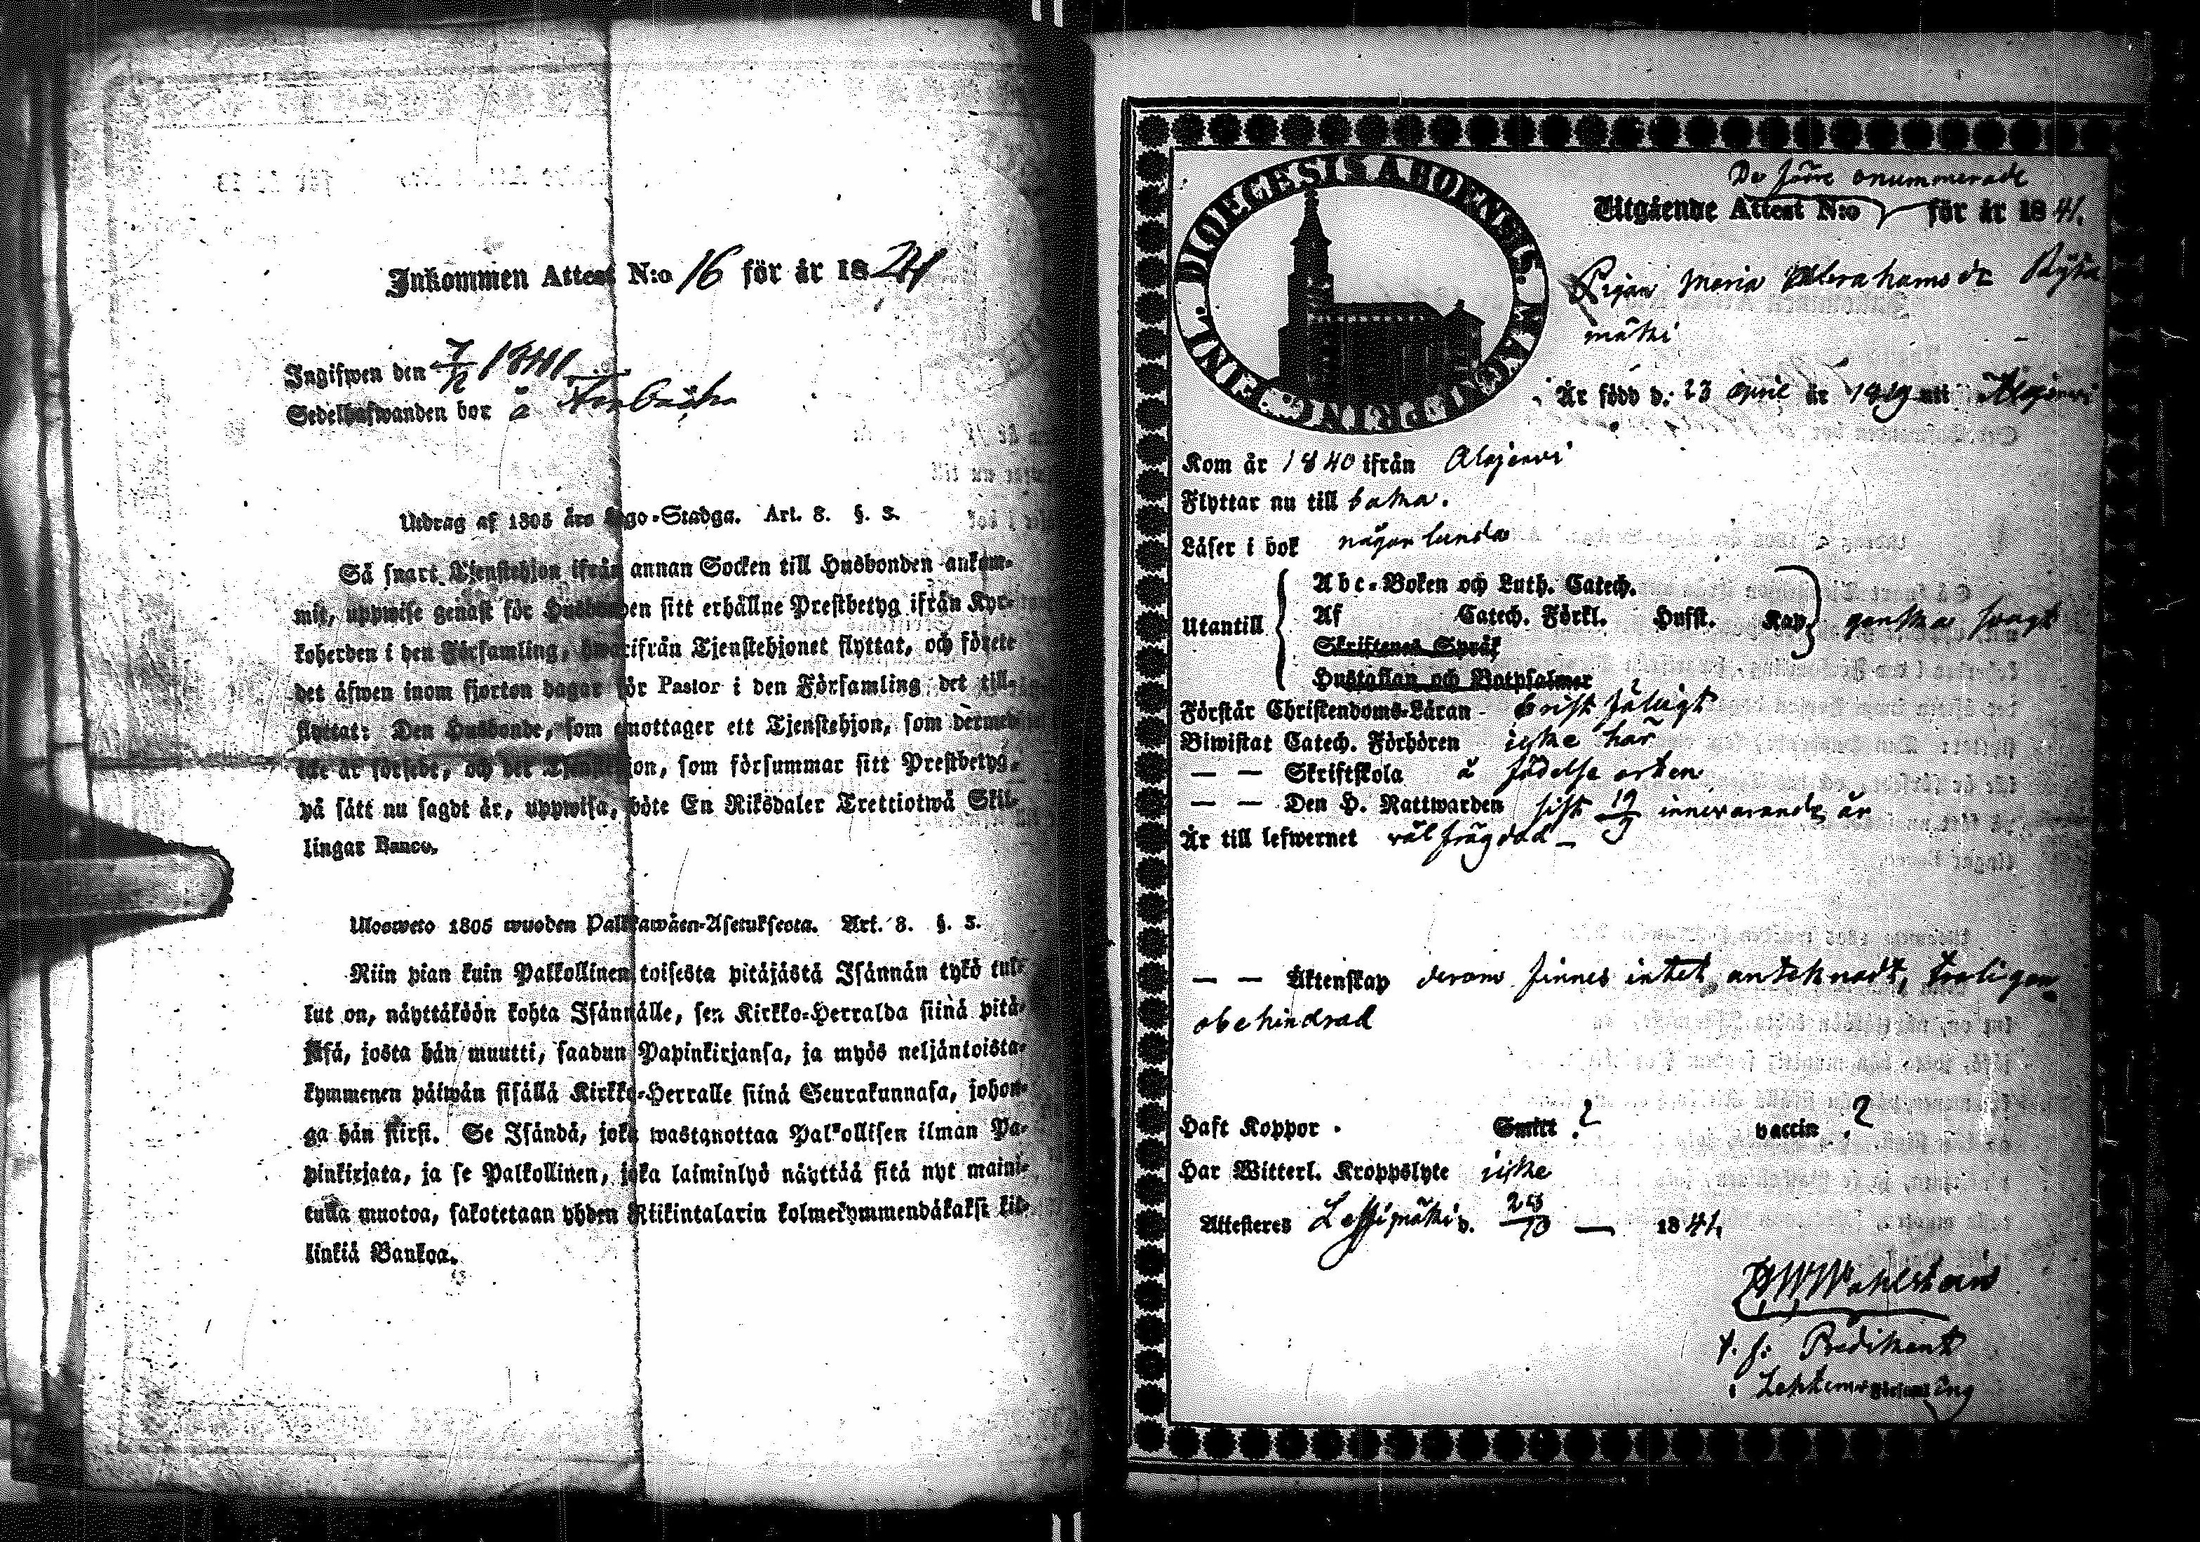 Inkommen Attest N:o 16 för år 1841
Ingifwen den 7/12 1841
Sedelhafwanden bor å
Utdrag af 1805 års Lego-Stadga. Art. 8. §. 3.
Så snart Tjenstehjon ifrån annan Socken till Husbonden ankom-
mit, uppwise genast för Husbonden sitt erhållne Prestbetyg ifrån Kyr-
koherden i den Församling, hwarifrån Tjenstehjonet flyttat, och förete
det äfwen inom fjorton dagar för Pastor i den Församling det till-
flyttat: Den Husbonde, som emottager ett Tjenstehjon, som dermed
icke är försedt, och det Tjenstehjon, som försummar sitt Prestbetyg,
på sätt nu sagdt är, uppwisa, böte En Riksdaler Trettiotwå Skil-
lingar Banco.
Ulosweto 1805 wuoden Palkkawäen-Asetuksesta. Art. 8. §. 3.
Niin pian kuin Palkollinen toisesta pitäjästä Isännän tykö tul-
lut on, näyttäköön kohta Isännälle, sen Kirkko-Herralda siinä pitä-
jäsä, josta hän muutti, saadun Papinkirjansa, ja myös neljäntoista-
kymmenen päiwän sisällä Kirkko-Herralle siinä Seurakunnasa, johon-
ga hän siirsi. Se Isändä, joka wastanottaa Palkollisen ilman Pa-
pinkirjata, ja se Palkollinen, joka laiminlyö näyttää sitä nyt maini-
tulla muotoa, sakotetaan yhden Riikintalarin kolmekymmendäkaksi kil-
linkiä Bankoa.
DIOECESIS ABOENSIS. MAGNI PRINC. FINL.
De förre onummerade
Utgående Attest N:o för år 1841.
Pigan Maria Abrahamsdr Kyrö
mäki
Är född d. 23 April år 1819 uti Alajervi
Kom år 1840 ifrån Alajervi
Flyttar nu till baka.
Läser i bok någorlunda
Abc-Boken och Luth. Catech.
Utantill Af Catech. Förkl. Husst. Kap. ganska swagt
Skriftenes Språk
Hustaflan och Botpsalmer
Förstår Christendoms-Läran bristfäligt
Biwistat Catech. Förhören icke här
— — Skriftskola å födelse orten
— — Den H. Nattwarden sist 19/9 innevarande år
Är till lefwernet välfrägdad —
— — Äktenskap derom finnes intet antecknadt, troligen
obehindrad
Haft Koppor . Smitt ? vaccin ?
Har Witterl. Kroppslyte icke
Attesteres Lappmäki d. 25/10 — 1841
Wahlstein
t. f. Predikant